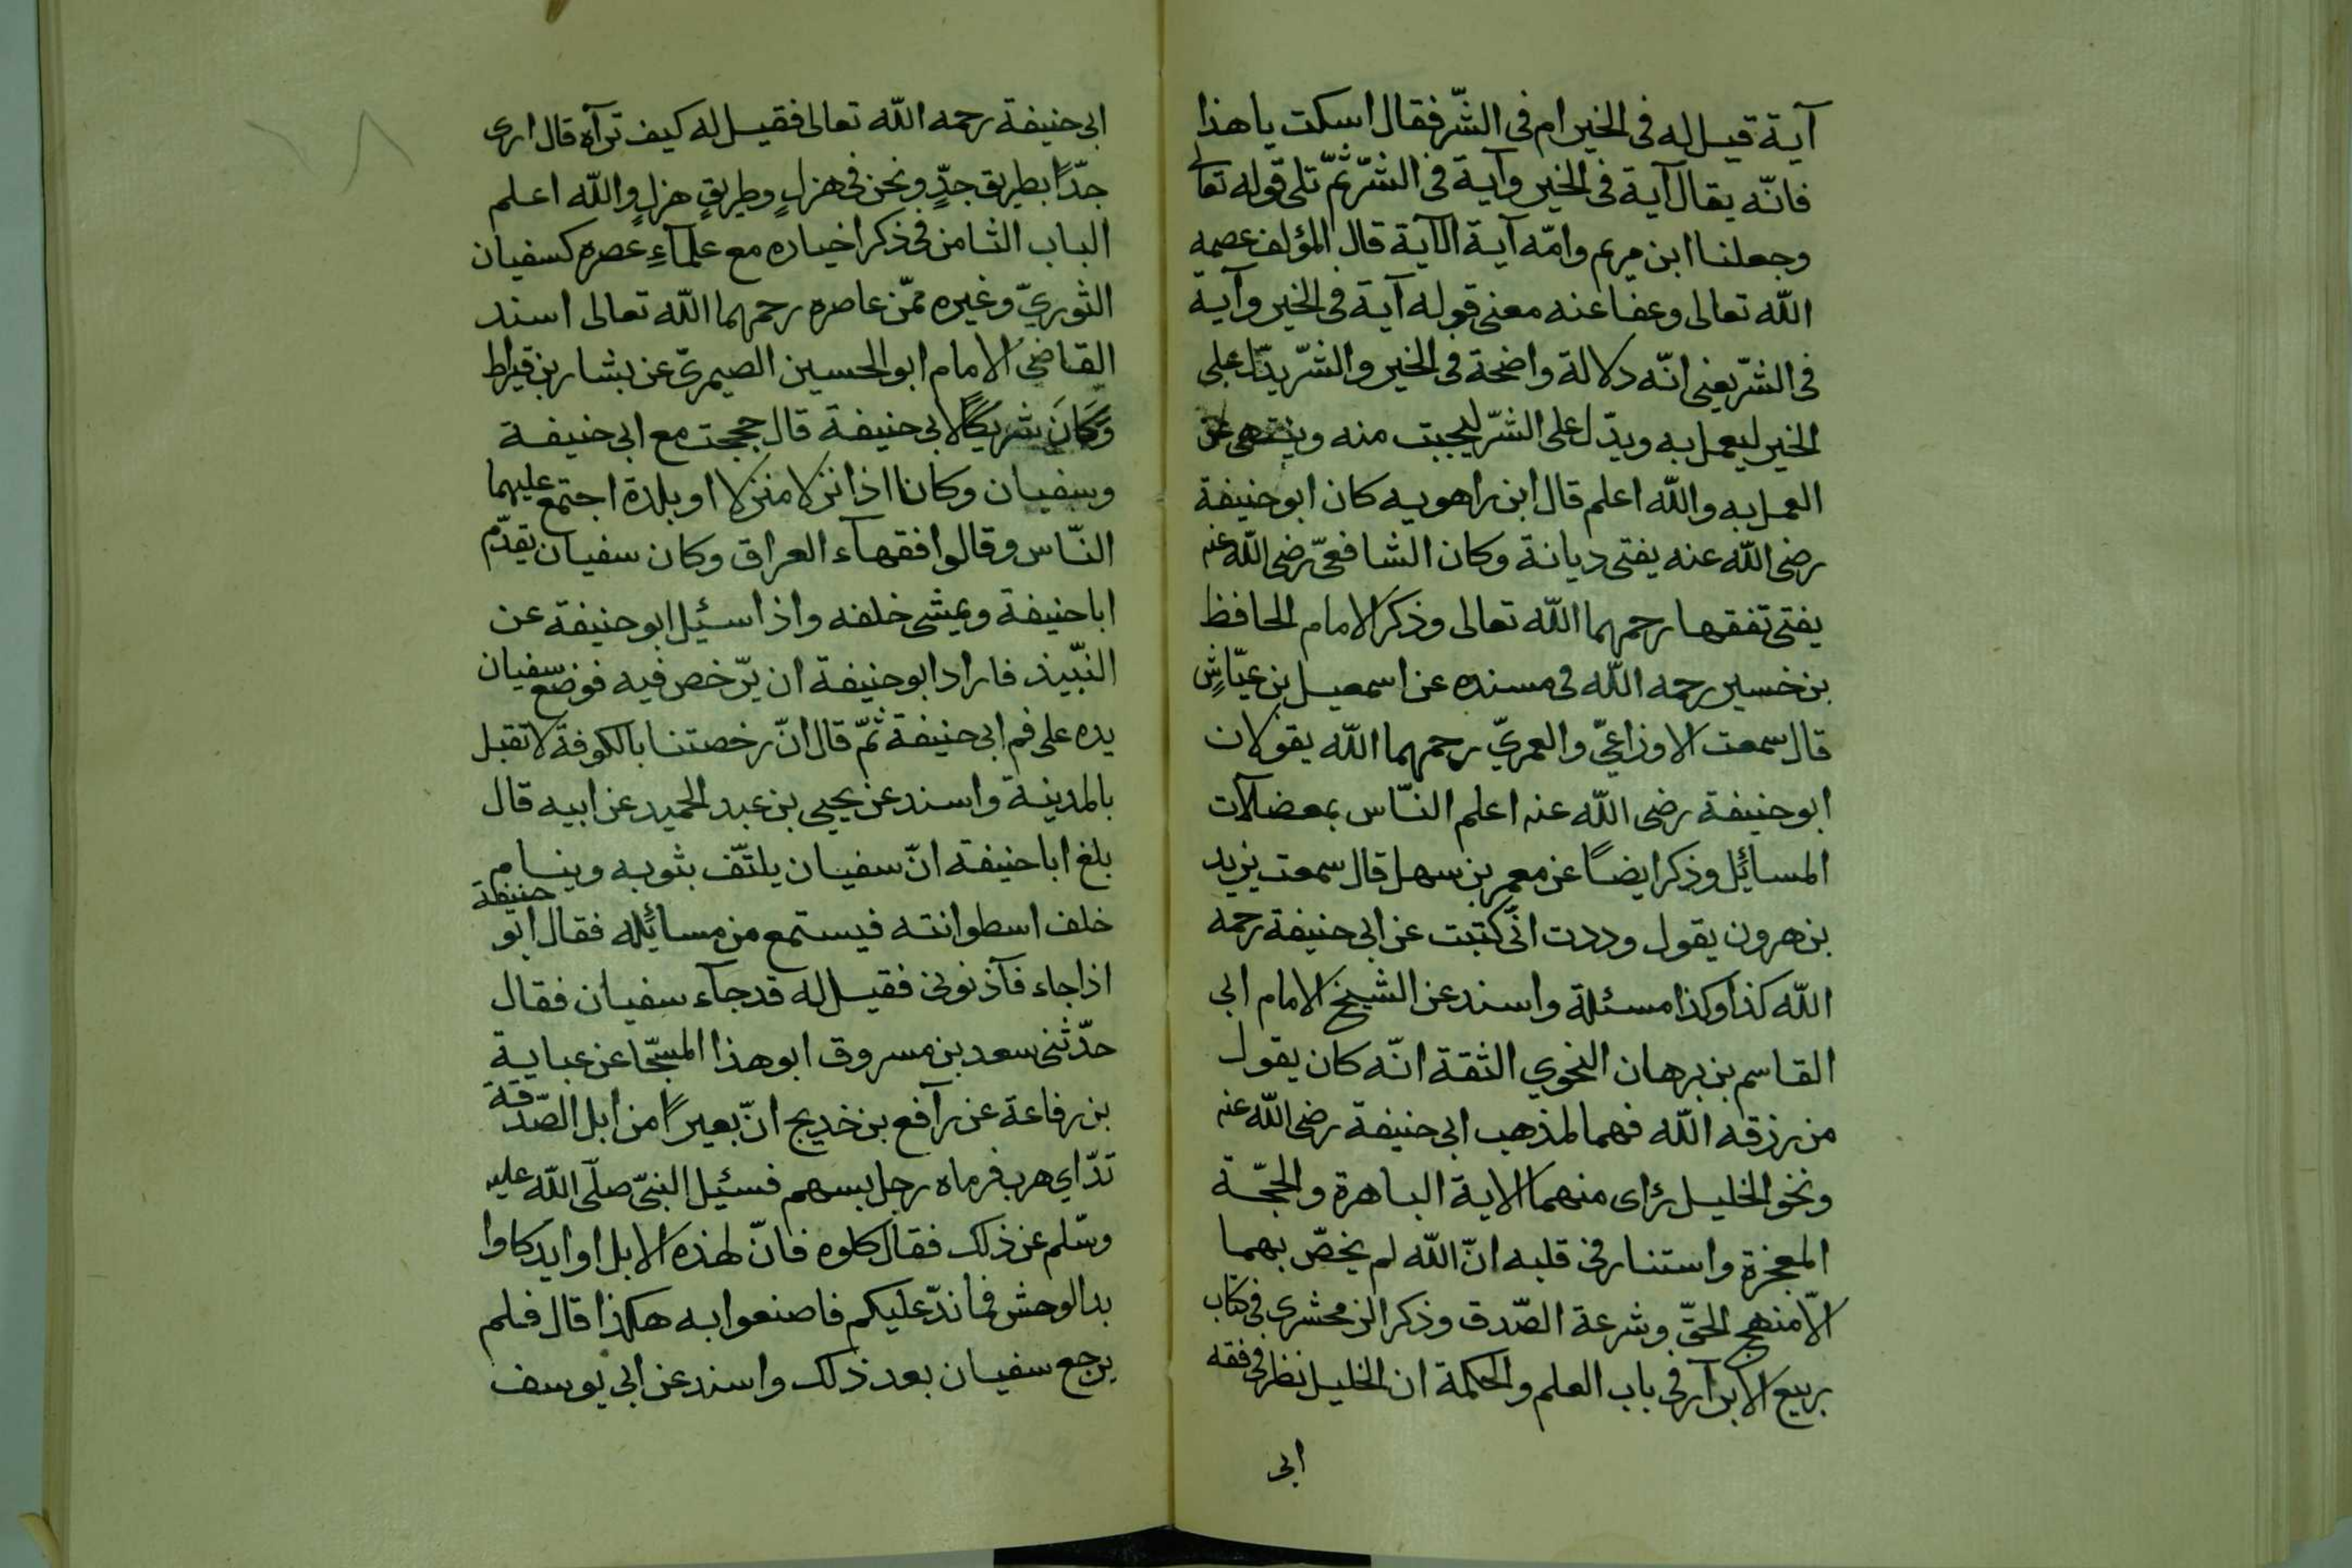 آية قيل له فى الخير ام فى الشّر فقال اسكت يا هذا
فانّه يقال آية فى الخير وآية فى الشّر ثمّ تلى قوله تعالى
وجعلنا ابن مريم وامّه آية الآية قال المؤلف عصمه
الله تعالى وعفا عنه معنى قوله آية فى الخير وآية
فى الشّر يعنى انّه دلالة واضحة فى الخير والشّر يدّل على
الخير ليعمل به ويدّل على الشّر ليجبت منه وينتهى عن
العمل به والله اعلم قال ابن راهويه كان ابو حنيفة
رضى الله عنه يفتى ديانة وكان الشافعىّ رضى الله عنه
يفتى تفقها رحمهما الله تعالى وذكر الامام الحافظ
بن خسير رحمه الله فى مسنده عن اسمعيل بن عيّاشٍ
قال سمعت الاوزاعيّ والعمريّ رحمهما الله يقولان
ابو حنيفة رضى الله عنه اعلم النّاس بمعضلآت
المسائل وذكر ايضًا عن معمر بن سهل قال سمعت يزيد
بن هرون يقول وددت انّى كتبت عن ابى حنيفة رحمه
الله كذا وكذا مسئلة واسند عن الشيخ الامام ابى
القاسم بن برهان النحوي الثقة انّه كان يقول
من رزقه الله فهما لمذهب ابى حنيفة رضى الله عنه
ونحو الخليل رأى منهما الاية الباهرة والحجّة
المعجزة واستنار فى قلبه انّ الله لم يخصّ بهما
الّا منهج الحقّ وشرعة الصّدق وذكر الزمحشرى فى كتاب
ربيع الابرآر فى باب العلم والحكمة ان الخليل نظر فى فقه
ابى
ابى حنيفة رحمه الله تعالى فقيل له كيف ترآه قال ارى
جدّا بطريق جدٍّ ونحن فى هزلٍ وطريقٍ هزلٍ والله اعلم
الباب الثامن فى ذكر اخباره مع علمآءِ عصره كسفيان
الثوريّ وغيره ممّن عاصره رحمهما الله تعالى اسند
القاضى الامام ابو الحسين الصيمرىّ عن بشار بن قيراط
وَكَانَ شريكًا لابى حنيفة قال حججت مع ابى حنيفة
وسفيان وكانا اذا نزلا منزلا او بلدة اجتمع عليهما
النّاس وقالوا فقهآء العراق وكان سفيان يقدّم
ابا حنيفة ويمشى خلفه واذا سئيل ابو حنيفة عن
النّبيذ فاراد ابو حنيفة ان يرّخص فيه فوضع سفيان
يده على فم ابى حنيفة ثمّ قال انّ رخصتنا بالكوفة لا تقبل
بالمدينة واسند عن يحيى بن عبد الحميد عن ابيه قال
بلغ ابا حنيفة انّ سفيان يلتّف بثوبه وينام
خلف اسطوانته فيستمع من مسائله فقال ابو حنيفة
اذا جاء فآذنونى فقيل له قد جآء سفيان فقال
حدّثنى سعد بن مسروق ابو هذا المسجّا عن عباية
بن رفاعة عن رآفع بن خديج انّ بعيرًا من ابل الصّدقة
تدّاي هرب فرماه رجل بسهم فسئيل النبىّ صلّى الله عليه
وسّلم عن ذلك فقال كلوه فانّ لهذه الابل اوابد كاوا
بد الوحش فما ندّ عليكم فاصنعوا به هكذا قال فلم
يرجع سفيان بعد ذلك واسند عن ابى يوسف